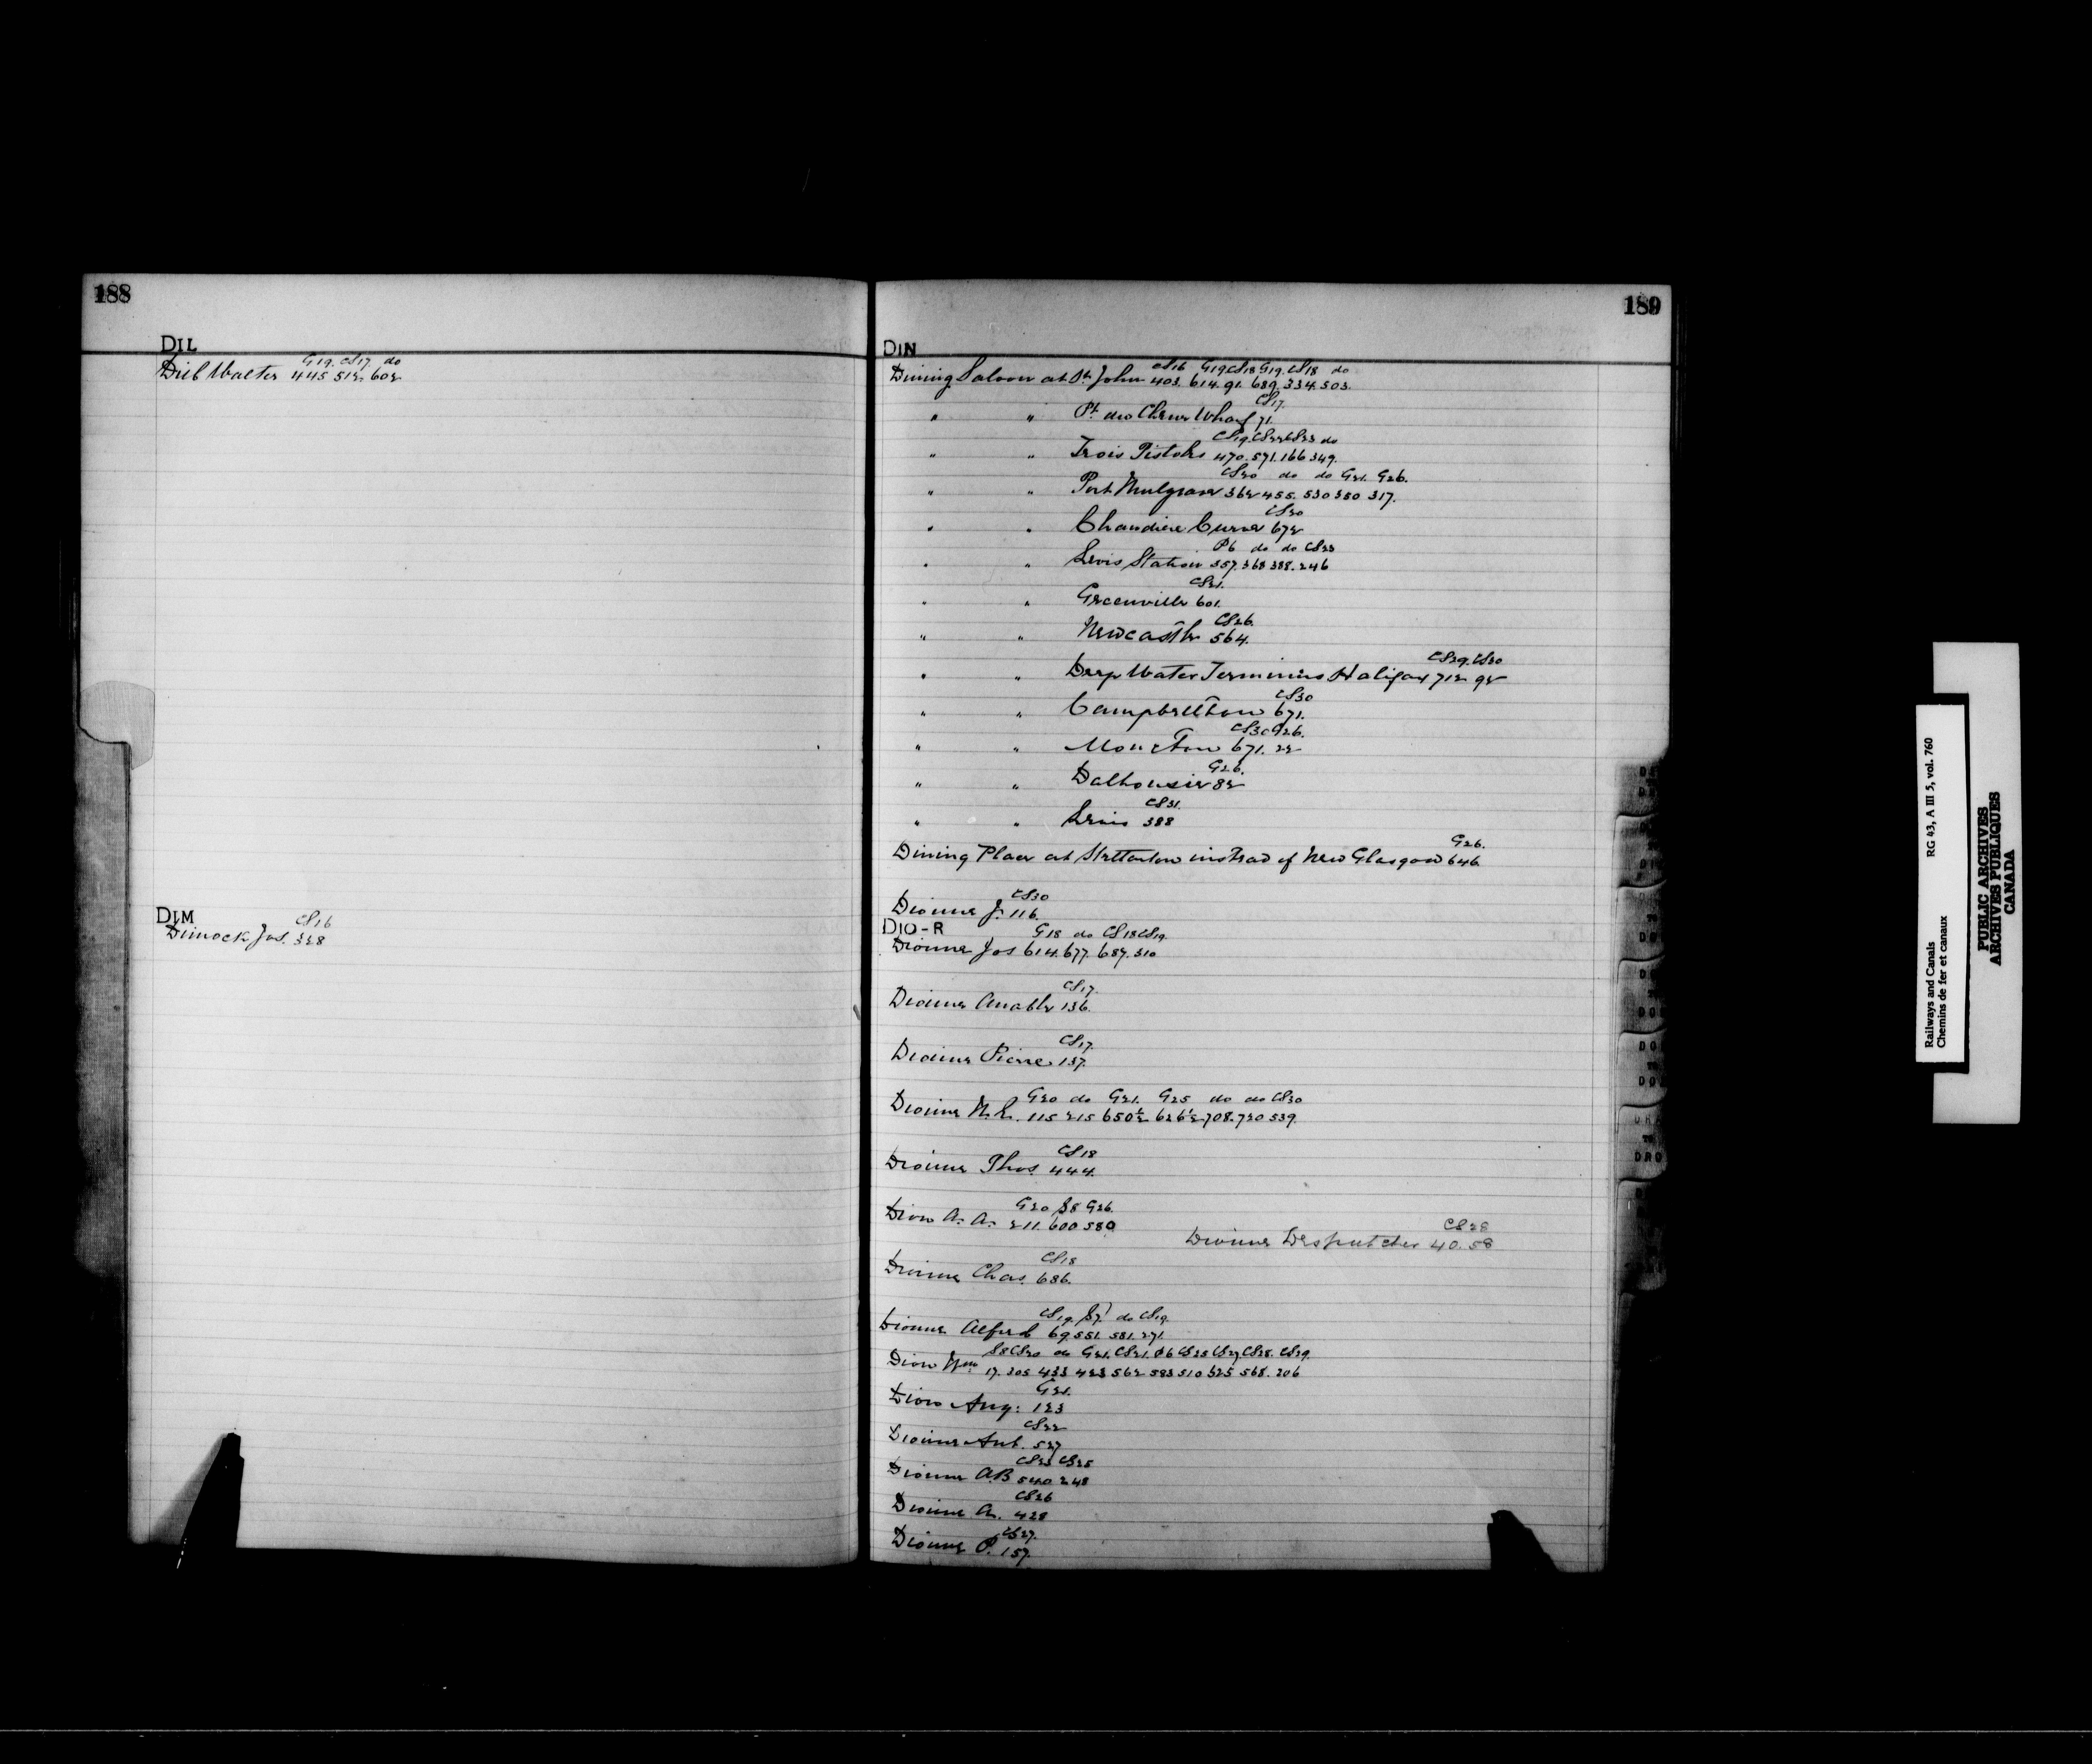 188
DIL
G19. CS17. do
Dill Walter 445 512 602
DIM
CS16
Dimock Jas. 328
189
DIN
CS16 G19 CS18 G19. CS18 do
Dining Saloon at St John 403. 614. 91. 689. 334. 503.
CS17.
" " Pt du Chene Wharf 71.
CS19. CS22 CS23 do
" " Trois Pistoles 470. 571. 166 349.
CS20 do do G21. G26.
" " Port Mulgrave 362 455. 530 350 317.
CS20
" " Chaudiere Curve 672
P6 do do CS23
" " Levis Station 357. 368 388. 246
CS21.
" " Greenville 601.
CS26.
" " Newcastle 564.
CS29. CS30
" " Deep Water Terminus Halifax 712 92
CS30
" " Campbellton 671.
CS30 G26.
" " Moncton 671. 22
G26.
" " Dalhousie 82
CS31.
" " Levis 388
G26.
Dining Place at Stellarton instead of New Glasgow 646.
CS30
Dionne J. 116.
DIO-R
G18 do CS18 CS19.
Dionne Jos 614. 677. 687. 310
CS17.
Dionne Amable 136.
CS17.
Dionne Pierre 137.
G20 do G21. G25 do do CS30
Dionne N. L. 115 215 650½ 626½ 708. 720 539.
CS18
Dionne Thos. 444.
G20 S8 G26.
Dion A. A. 211. 600 580
CS28
Dionne Despatcher 40. 58
CS18
Dionne Chas. 686.
CS19. S7. do CS19.
Dionne Alfred 69. 551. 581. 271.
S8 CS20 do G21. CS21. P6 CS25 CS27. CS28. CS29.
Dion Wm 17. 305 433 423 562 593 510 325 568. 206
G21.
Dion Aug: 123
CS22
Dionne Ant. 527
CS23 CS25
Dionne A.B 540 248
CS26
Dionne A. 428
CS27.
Dionne P. 157.
Railways and Canals RG 43, A III 5, vol. 760
Chemins de fer et canaux
PUBLIC ARCHIVES
ARCHIVES PUBLIQUES
CANADA